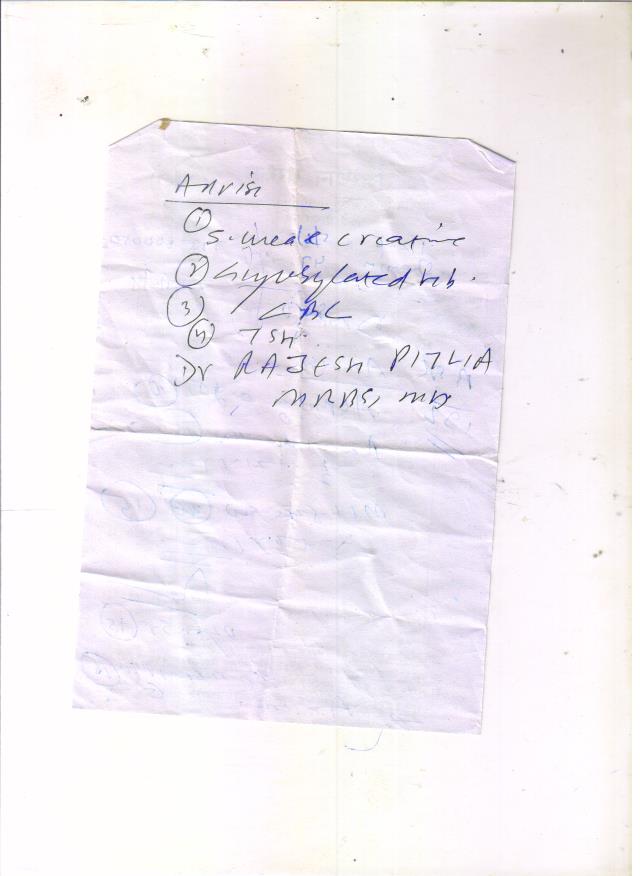 Advise
① S. urea & creatine
② Glycosylated Hb.
③ CBC
④ TSH.
Dr RAJESH PITLIA
MBBS, MD